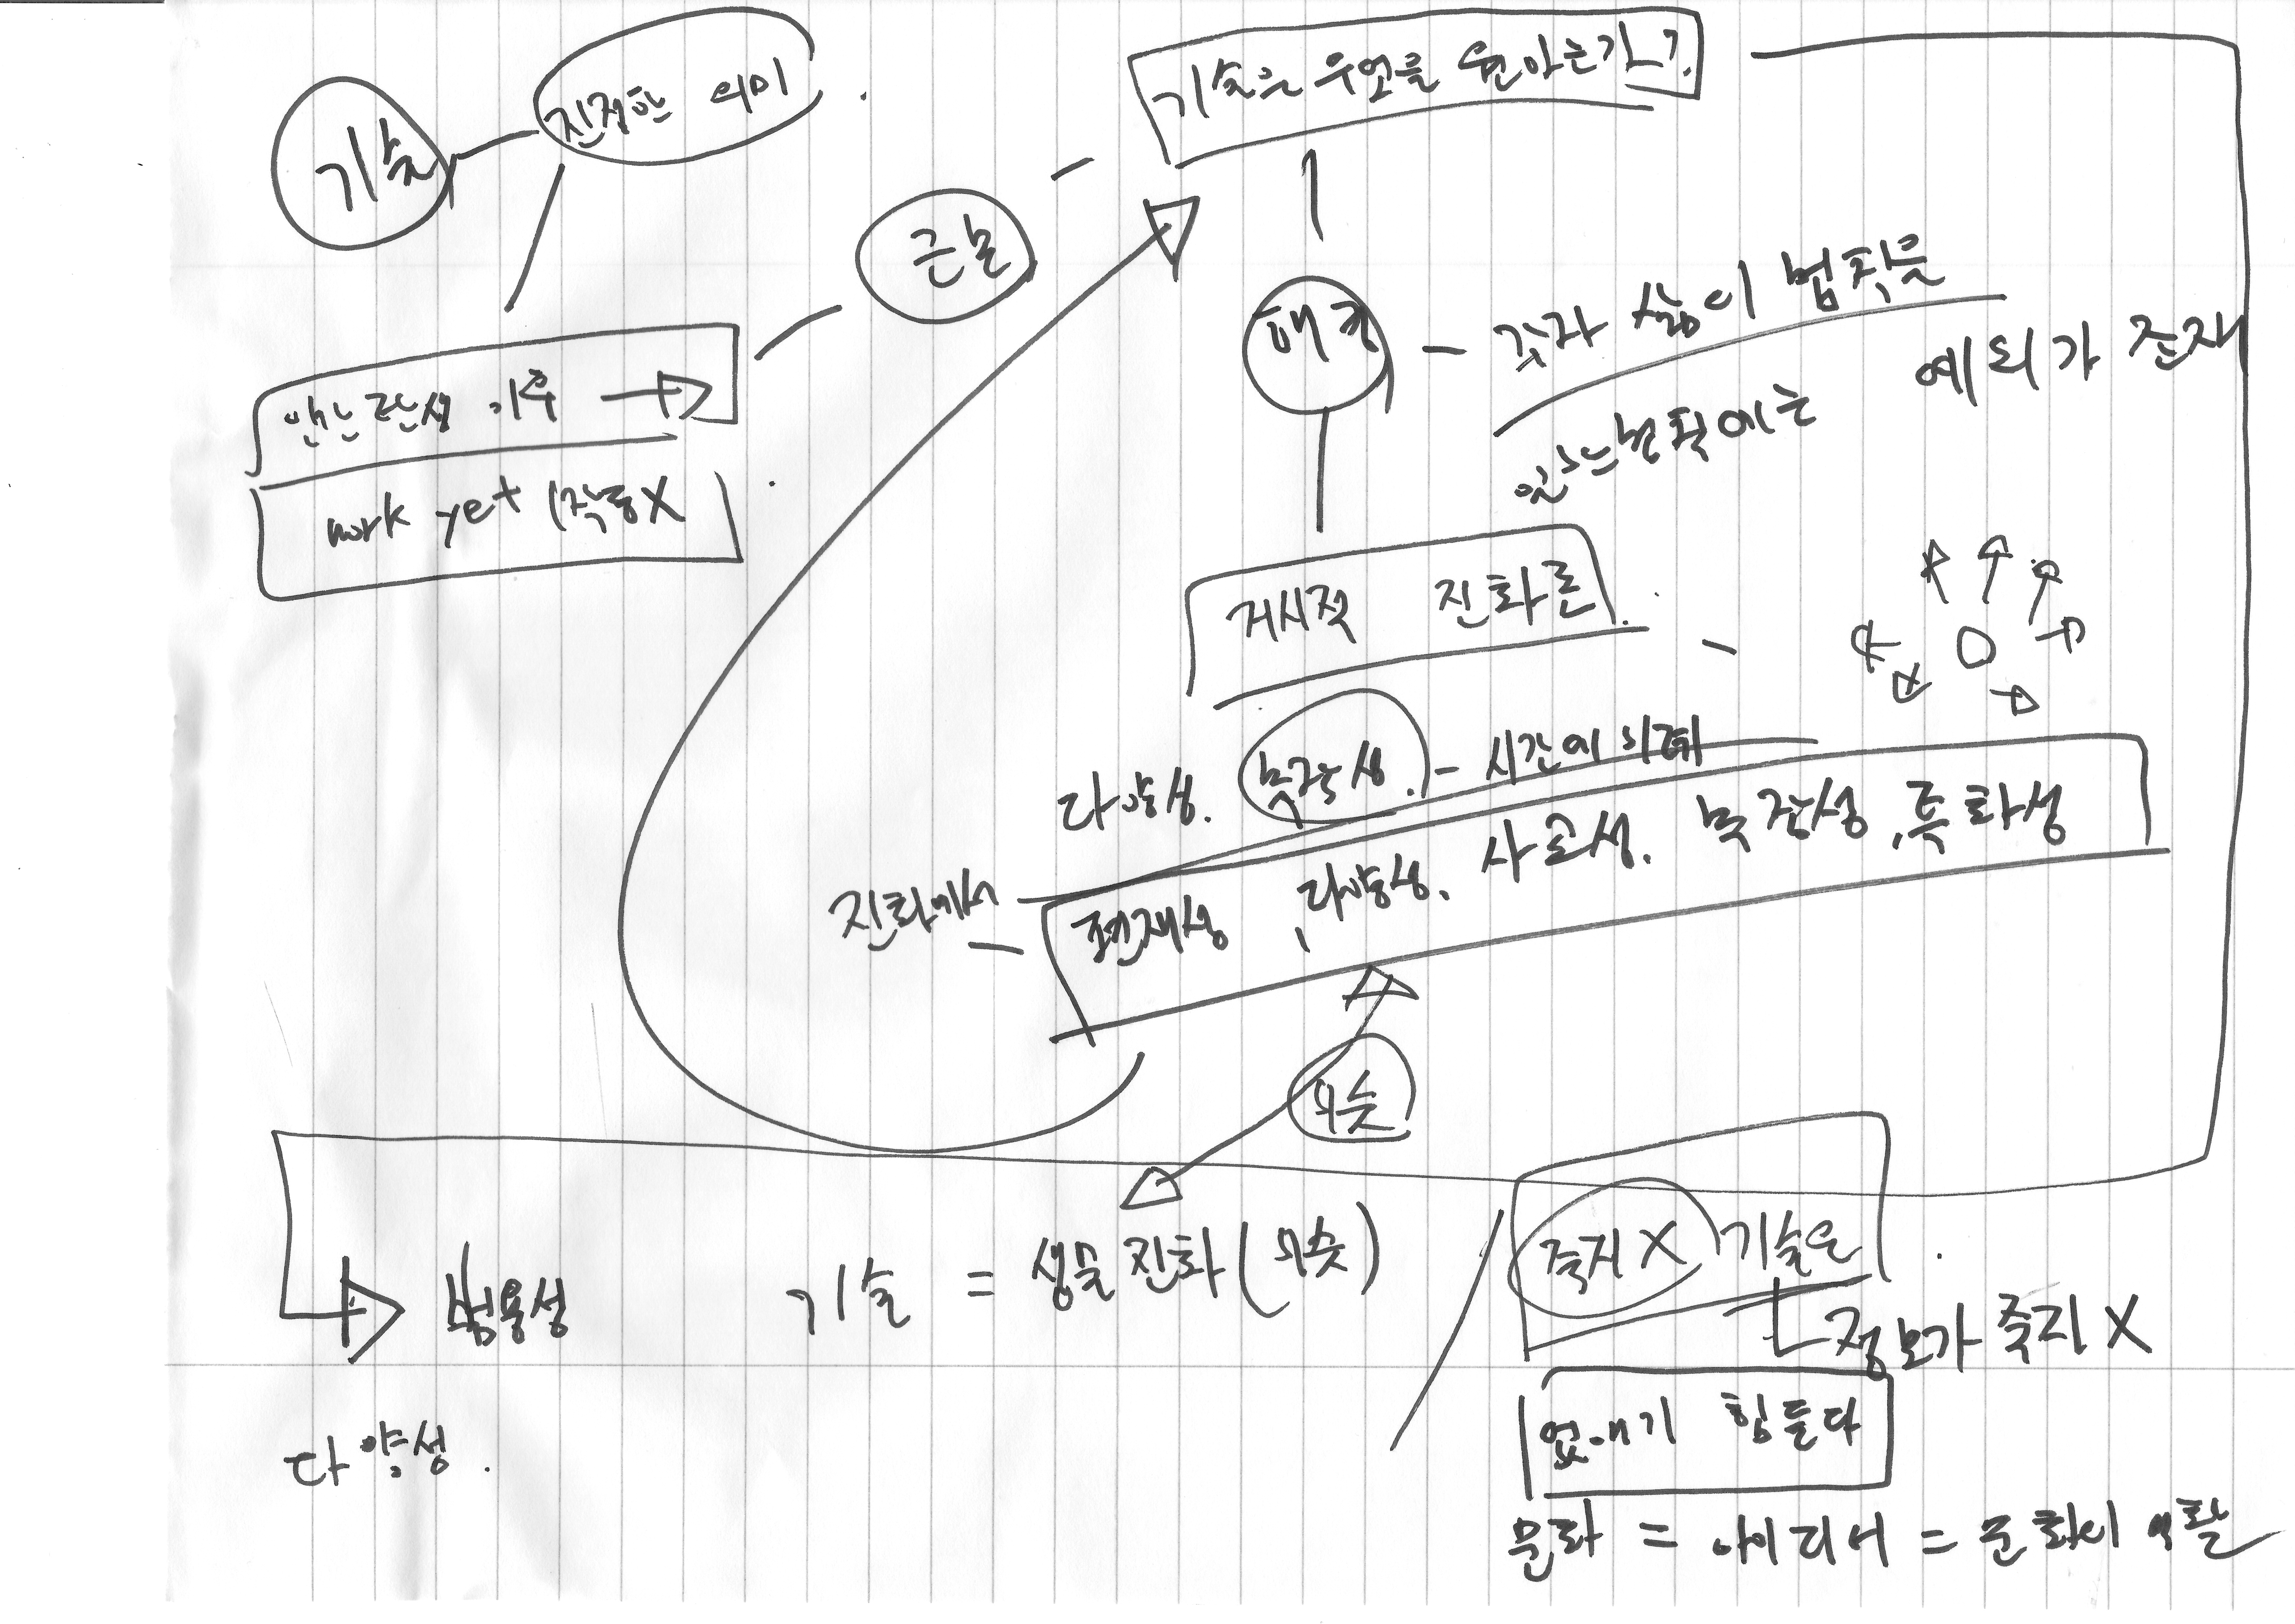 기술
진정한 의미
기술은 무엇을 원하는가?
근본
해킹 - 각자 삶의 법칙을
있는 법칙에는 예외가 존재
work yet (작동X
거시적 진화론
다양성. 복잡성. - 시간에 의해
진화에서 - 편재성, 다양성. 사교성. 복잡성, 특화성
비슷
범용성
기술 = 생물 진화 (비슷)
죽지 X 기술은
정보가 죽지 X
없애기 힘들다
다양성.
문화 = 아이디어 = 문화의 역할